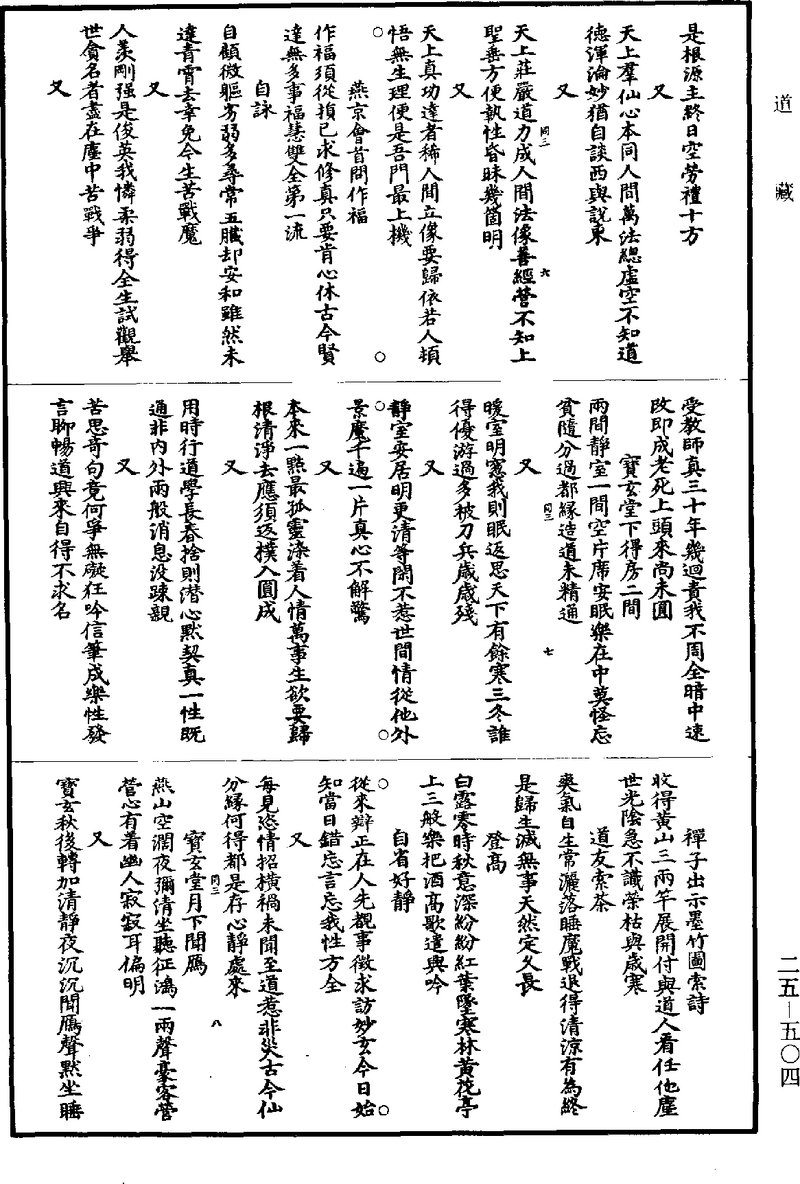 道藏
是根源主終日空勞禮十方
又
天上羣仙心本同人間萬法總虛空不知道
德渾淪妙猶自談西與說東
又
同三
六
天上莊嚴道力成人間法像善經營不知上
聖垂方便執性昏昧幾箇明
又
天上真功達者稀人間立像要歸依若人頓
悟無生理便是吾門最上機
燕京會首問作福
作福須從損已求修真只要肯心休古今賢
達無多事福慧雙全第一流
自詠
自顧微軀劣弱多尋常五臟却安和雖然未
達青霄去幸免今生苦戰魔
又
人羨剛强是俊英我憐柔弱得全生試觀舉
世貪名者盡在塵中苦戰爭
又
受教師真三十年幾迴責我不周全暗中速
改即成老死上頭來尚未圓
寶玄堂下得房二間
兩間靜室一間空片席安眠樂在中莫怪忘
貧隨分過都緣造道未精通
又
同三
七
暖室明窻我則眠返思天下有餘寒三冬誰
得優游過多被刀兵歲歲殘
又
靜室安居明更清等閑不惹世間情從他外
景魔千遍一片真心不解驚
又
本來一點最孤靈染着人情萬事生欲要歸
根清淨去應須返樸入圓成
又
用時行道學長春捨則潜心默契真一性既
通非內外兩般消息没踈親
又
苦思奇句竟何爭無礙狂吟信筆成樂性發
言聊暢道興來自得不求名
禪子出示墨竹圖索詩
收得黃山三兩竿展開付與道人看任他塵
世光陰急不識榮枯與歲寒
道友索茶
爽氣自生常灑落睡魔戰退得清涼有為終
是歸生滅無事天然定久長
登高
白露零時秋意深紛紛紅葉墜寒林黃花亭
上三般樂把酒高歌遣興吟
自省好靜
從來辯正在人先覩事徵求訪妙玄今日始
知當日錯忘言忘我性方全
又
每見恣情招橫禍未聞至道惹非災古今仙
分緣何得都是存心靜處來
寶玄堂月下聞鴈
同三
八
燕山空濶夜彌清坐聽征鴻一兩聲豪客營
營心有着幽人寂寂耳偏明
又
寶玄秋後轉加清靜夜沉沉聞鴈聲默坐睡
二五—五〇四